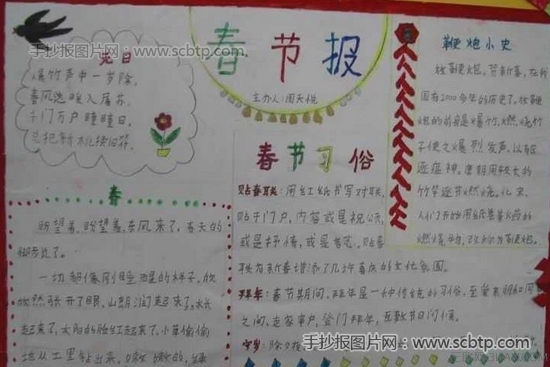 手抄报图片网
www.scbtp.com
春节报
主办人:周天悦
元日
爆竹声中一岁除,
春风送暖入屠苏。
千门万户曈曈日,
总把新桃换旧符。
春
盼望着,盼望着,东风来了,春天的
脚步近了。
一切都像刚睡醒的样子,欣
欣然张开了眼,山朗润起来了,水长
起来了,太阳的脸红起来了。小草偷偷
地从土里钻出来,嫩嫩的,绿
春节习俗
贴春联:用红纸书写对联,
贴于门户,内容或是祝公历
或是抒情,或是言志。贴春
联为新春增添了几许喜庆的文化氛围。
拜年:春节期间,拜年是一种传统的习俗,至爱亲朋和同事
之间,走家串户,登门拜年,互致节日问候。
守岁:除夕
鞭炮小史
放鞭炮,贺新春,在我
国有2000多年的历史了。放鞭
炮的前身是爆竹,燃烧竹
子使之爆烈发声,以驱
逐瘟神。唐朝用较长的
竹竿逐节燃烧。后来
人们开始用纸
的
手抄报图片网
www.scbtp.com